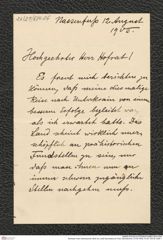 Nassenfuss 12 August
1905.
Hochgeehrter Herr Hofrat!
Es freut mich berichten zu
können, daß meine diesmalige
Reise nach Unterkrain von einem
besseren Erfolge begleitet war
als ich erwartet hatte. Das
Land scheint wirklich uner-
schöpflich an prähistorischen
Fundstellen zu sein, nur
daß man ihnen nun an
immer schwerer zugänglichen
Stellen nachgehen muß.